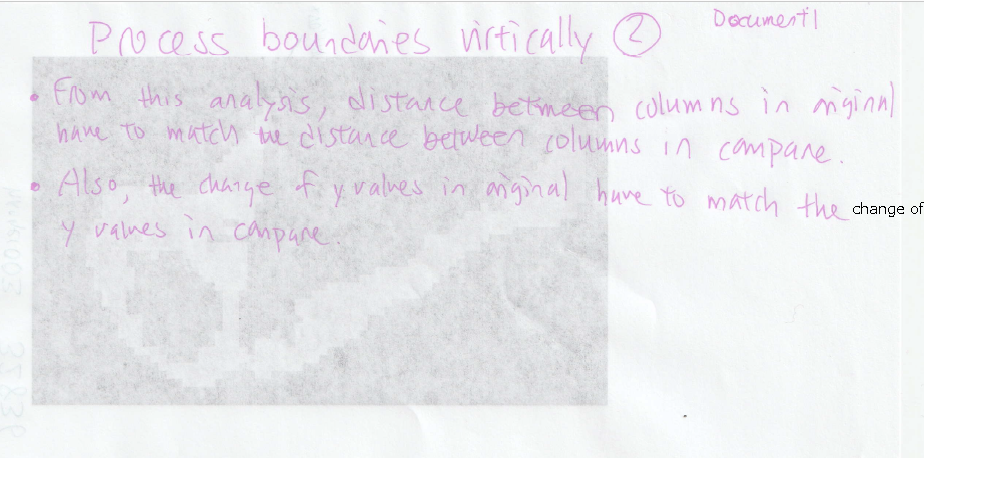 Process boundaries virtically ②
Document 1
• From this analysis, distance between columns in original
have to match the distance between columns in compare.
• Also, the change of y values in original have to match the change of
y values in compare.